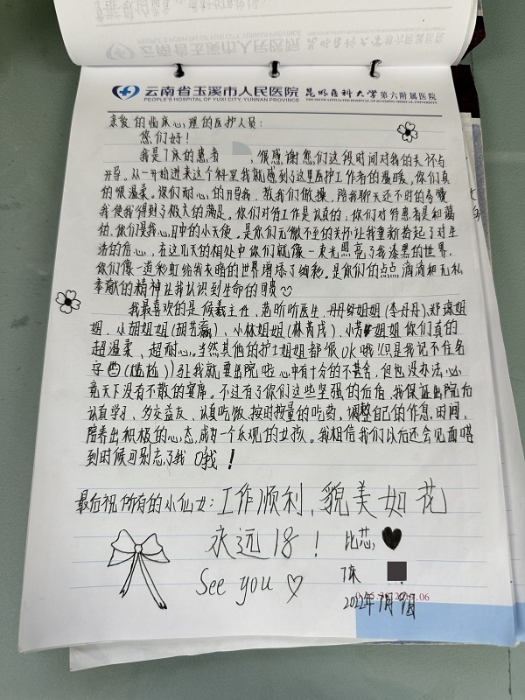 云南省玉溪市人民医院
PEOPLE'S HOSPITAL OF YUXI CITY, YUNNAN PROVINCE
昆明医科大学第六附属医院
亲爱的临床心理的医护人员:
您们好!
我是7床的患者 ,很感谢您们这段时间对我的关怀与
开导,从一开始进来这个科里我就感到了这里医护工作者的温暖,你们真
的很温柔,你们耐心的开导我,教我们做操,陪我聊天还不时的夸赞
我使我得到了极大的满足。你们对待工作是认真的;你们对待患者是和蔼
的,你们是我心目中的小天使,是你们无微不至的关怀让我重新拾起了对生
活的信心,在这几天的相处中你们就像一束光照亮了我漆黑的世界,
你们像一道彩虹给我灰暗的世界增添了绚艳。是你们的点点滴滴和无私
奉献的精神让我认识到生命的可贵
我最喜欢的是候羲主任、范昕昕医生、丹丹姐姐(李丹丹)、郑瑞姐
姐、小胡姐姐(胡芳瀛)、小林姐姐(林茜茂)、小芳姐姐你们真的
超温柔、超耐心,当然其他的护士姐姐都很Ok哦!只是我记不住名
字西(尴尬)轻我就要出院啦心中有十分的不甚舍,但也没办法,必
竟天下没有不散的宴席。不过有了你们这些坚强的后盾,我保证出院后
认真学习、多交益友、认真吃饭、按时按量的吃药,调整自己的作息时间,
陪养出积极的心态,成为一个乐观的女孩。我相信我们以后还会见面嗒
到时候可别忘了我哦!
最后祝所有的小仙女:工作顺利,貌美如花
永远18!
比芯
See you
7床
2022年7月9日